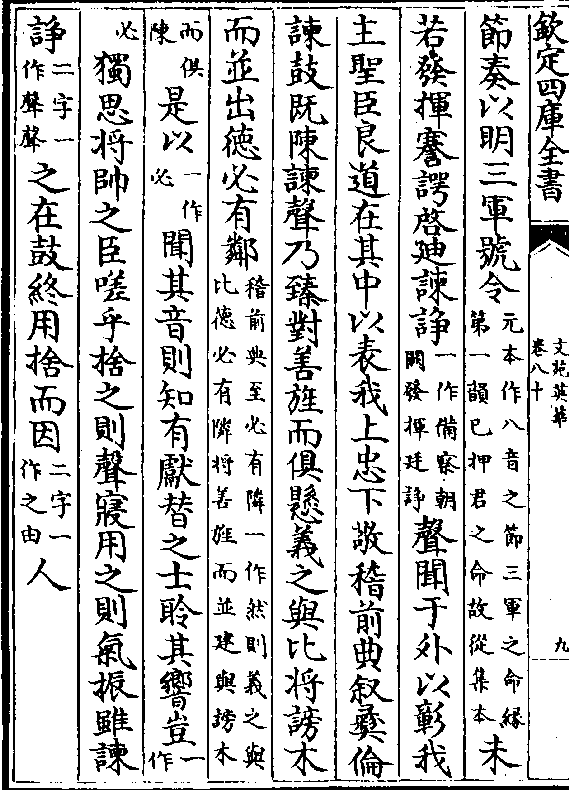 欽定四庫全書
文苑英華
卷八十
九
節奏以明三軍號令元本作八音之節三軍之命緣第一韻已押君之命故從集本未
若發揮謇諤啓廸諫諍一作備察朝闕發揮廷諍聲聞于外以彰我
主聖臣良道在其中以表我上忠下敬稽前典叙彞倫
諫鼓既陳諫聲乃臻對善旌而俱懸義之與比将謗木
而並出德必有鄰稽前典至必有隣一作然則義之與比德必有隣将善旌而並建與謗木
而俱陳是以一作必聞其音則知有獻替之士聆其響豈一作
必獨思将帥之臣嗟乎捨之則聲寢用之則氣振雖諫
諍二字一作聲聲之在鼓終用捨而因二字一作之由人